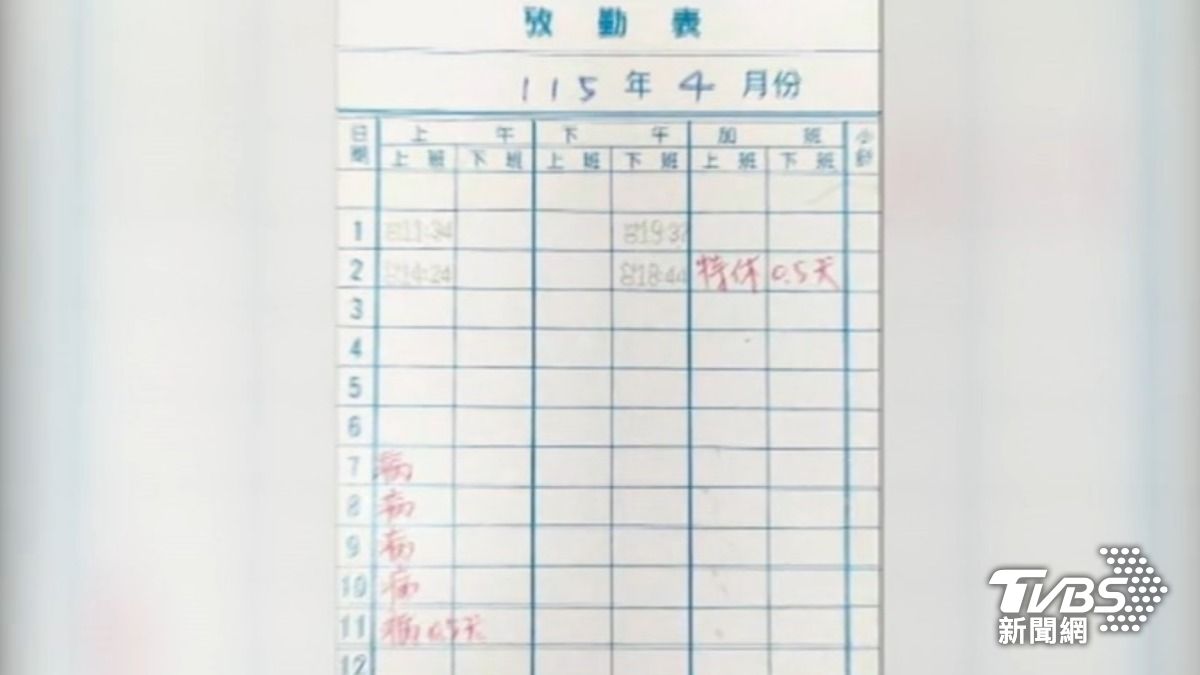 攷勤表
115年4月份
日期 上午 下午 加班 小計
上班 下班 上班 下班 上班 下班
1 11:34 19:37
2 14:24 18:44 特休 0.5天
3
4
5
6
7 病
8 病
9 病
10 病
11 病 0.5天
12
TVBS
新聞網